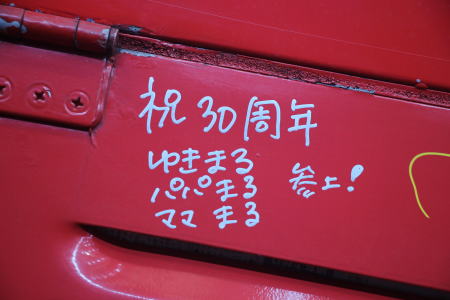 祝30周年
ゆきまる
パパまる 参上!
ママまる